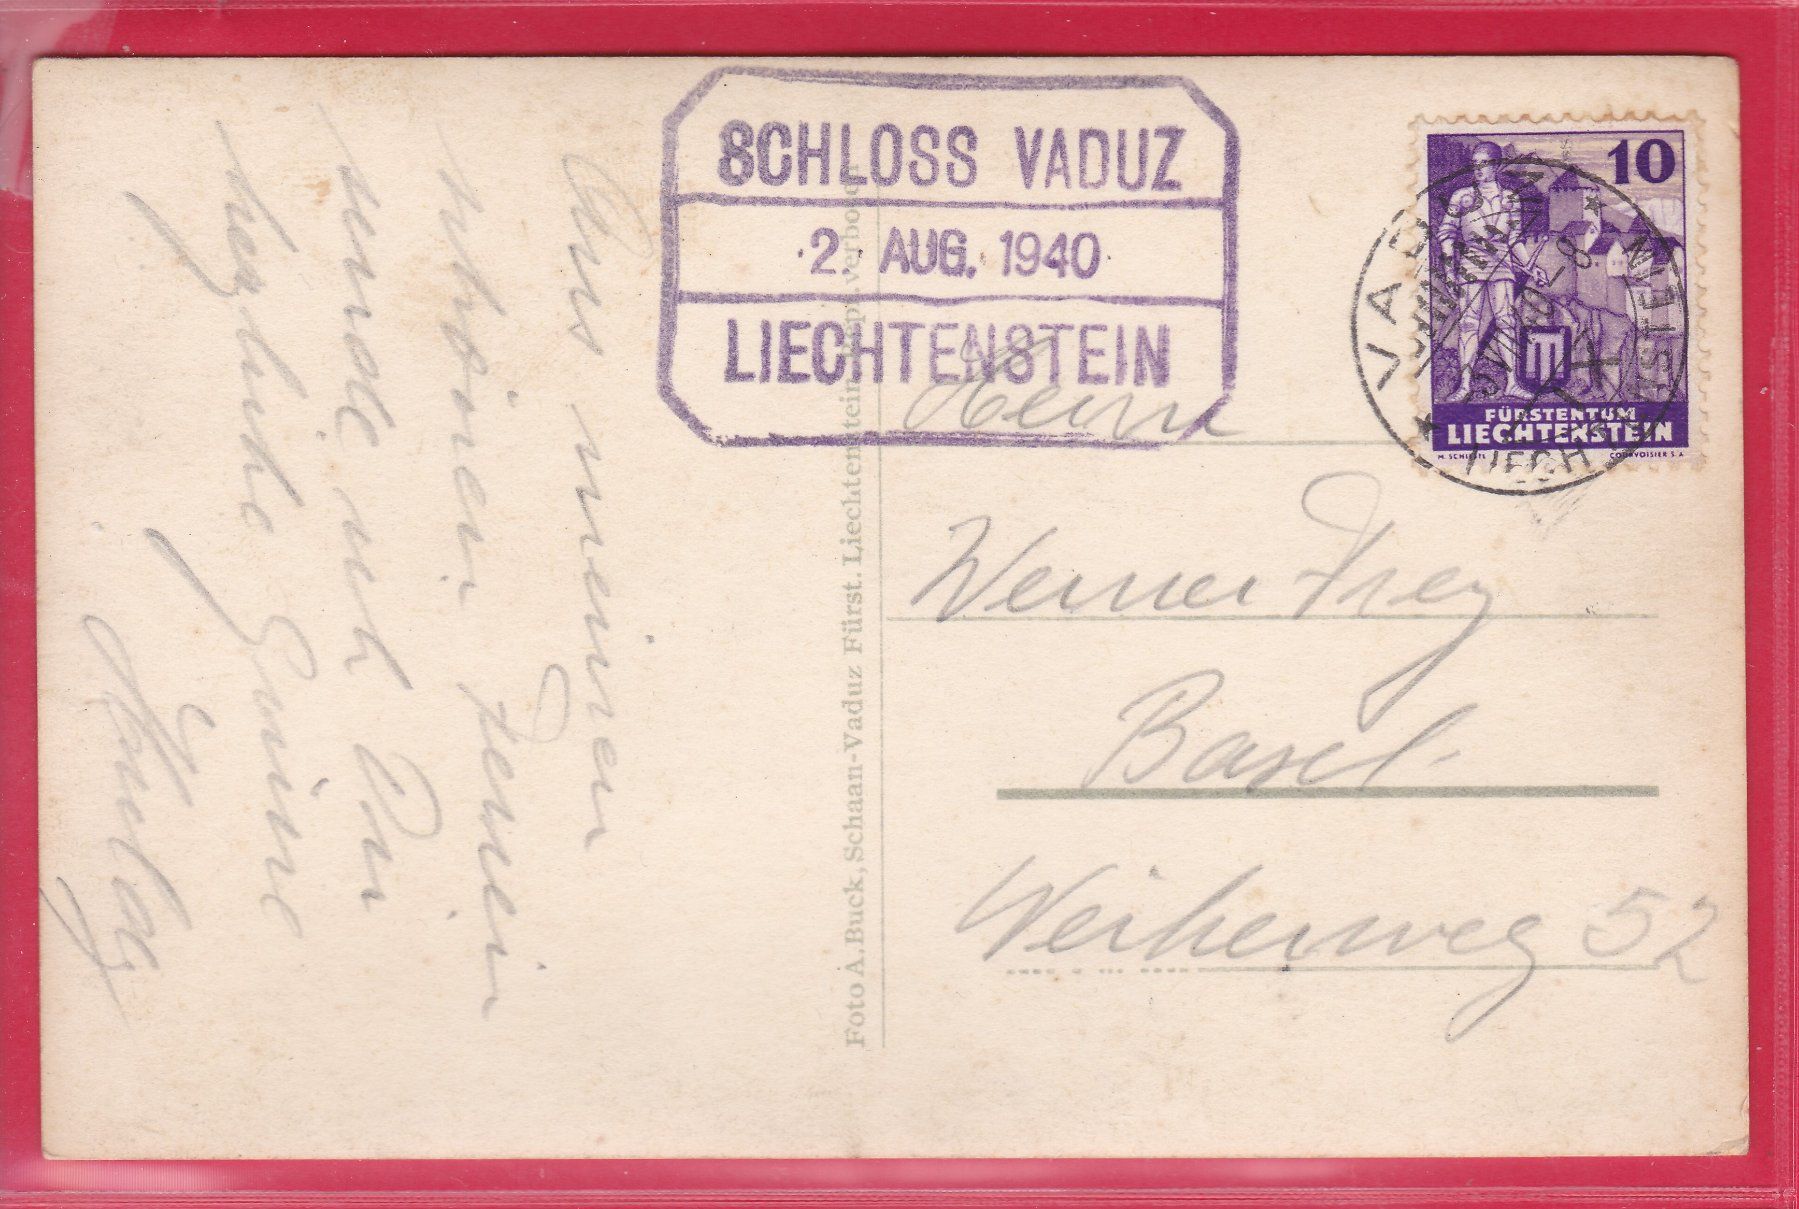 SCHLOSS VADUZ
·2. AUG. 1940
LIECHTENSTEIN
10
VADUZ
LIECHTENSTEIN
FÜRSTENTUM
LIECHTENSTEIN
COURVOISIER S.A
Aus meinen
schönen Ferien
sende ich Dir
herzliche Grüsse
Herrn
Werner Frey
Basel
Weiherweg 52
Foto A. Buck, Schaan-Vaduz Fürst. Liechtenstein Repr. verboten